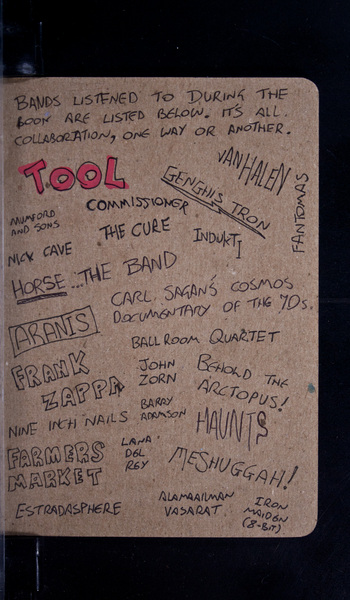 BANDS LISTENED TO DURING THE
BOOK ARE LISTED BELOW. IT'S ALL
COLLABORATION, ONE WAY OR ANOTHER.
TOOL
VAN HALEN
GENGHIS TRON
FANTOMAS
COMMISSIONER
MUMFORD
AND SONS
THE CURE
INDUKTI
NICK CAVE
HORSE ... THE BAND
CARL SAGAN'S COSMOS
DOCUMENTARY OF THE 70s.
ARANIS
BALLROOM QUARTET
FRANK
ZAPPA
JOHN
ZORN
BEHOLD THE
ARCTOPUS!
BARRY
ADAMSON
NINE INCH NAILS
HAUNTS
LANA
DEL
REY
FARMERS
MARKET
MESHUGGAH!
ESTRADASPHERE
ALAMAAILMAN
VASARAT
IRON
MAIDEN
(8-BIT)